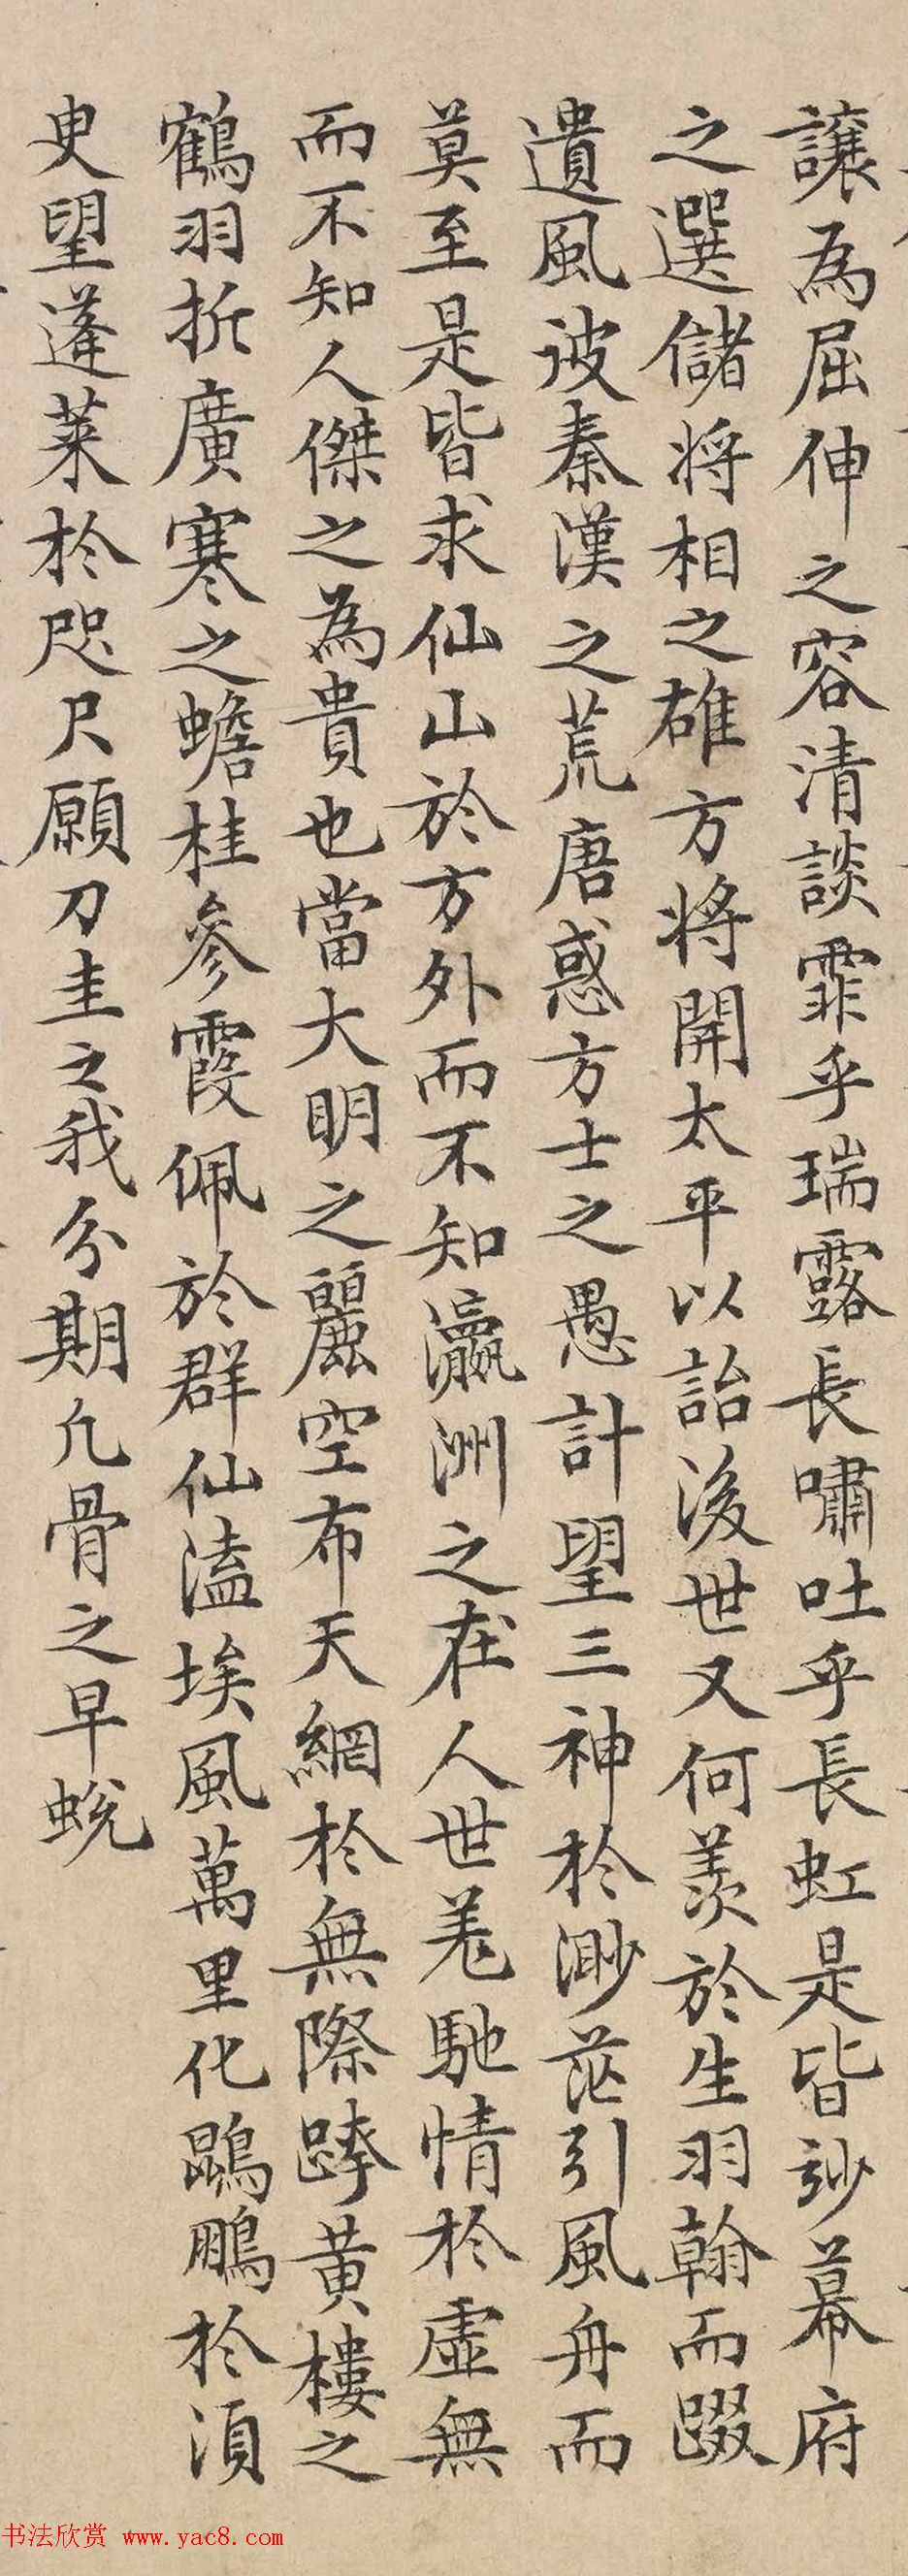 讓為屈伸之容清談霏乎瑞露長嘯吐乎長虹是皆妙幕府
之選儲将相之雄方将開太平以詒後世又何羨於生羽翰而啜
遺風彼秦漢之荒唐惑方士之愚計望三神於渺茫引風舟而
莫至是皆求仙山於方外而不知瀛洲之在人世羌馳情於虛無
而不知人傑之為貴也當大明之麗空布天網於無際跨黄樓之
鶴羽折廣寒之蟾桂參霞佩於群仙溘埃風萬里化鵾鵬於湏
臾望蓬莱於咫尺願刀圭之我分期凡骨之早蛻
书法欣赏 www.yac8.com